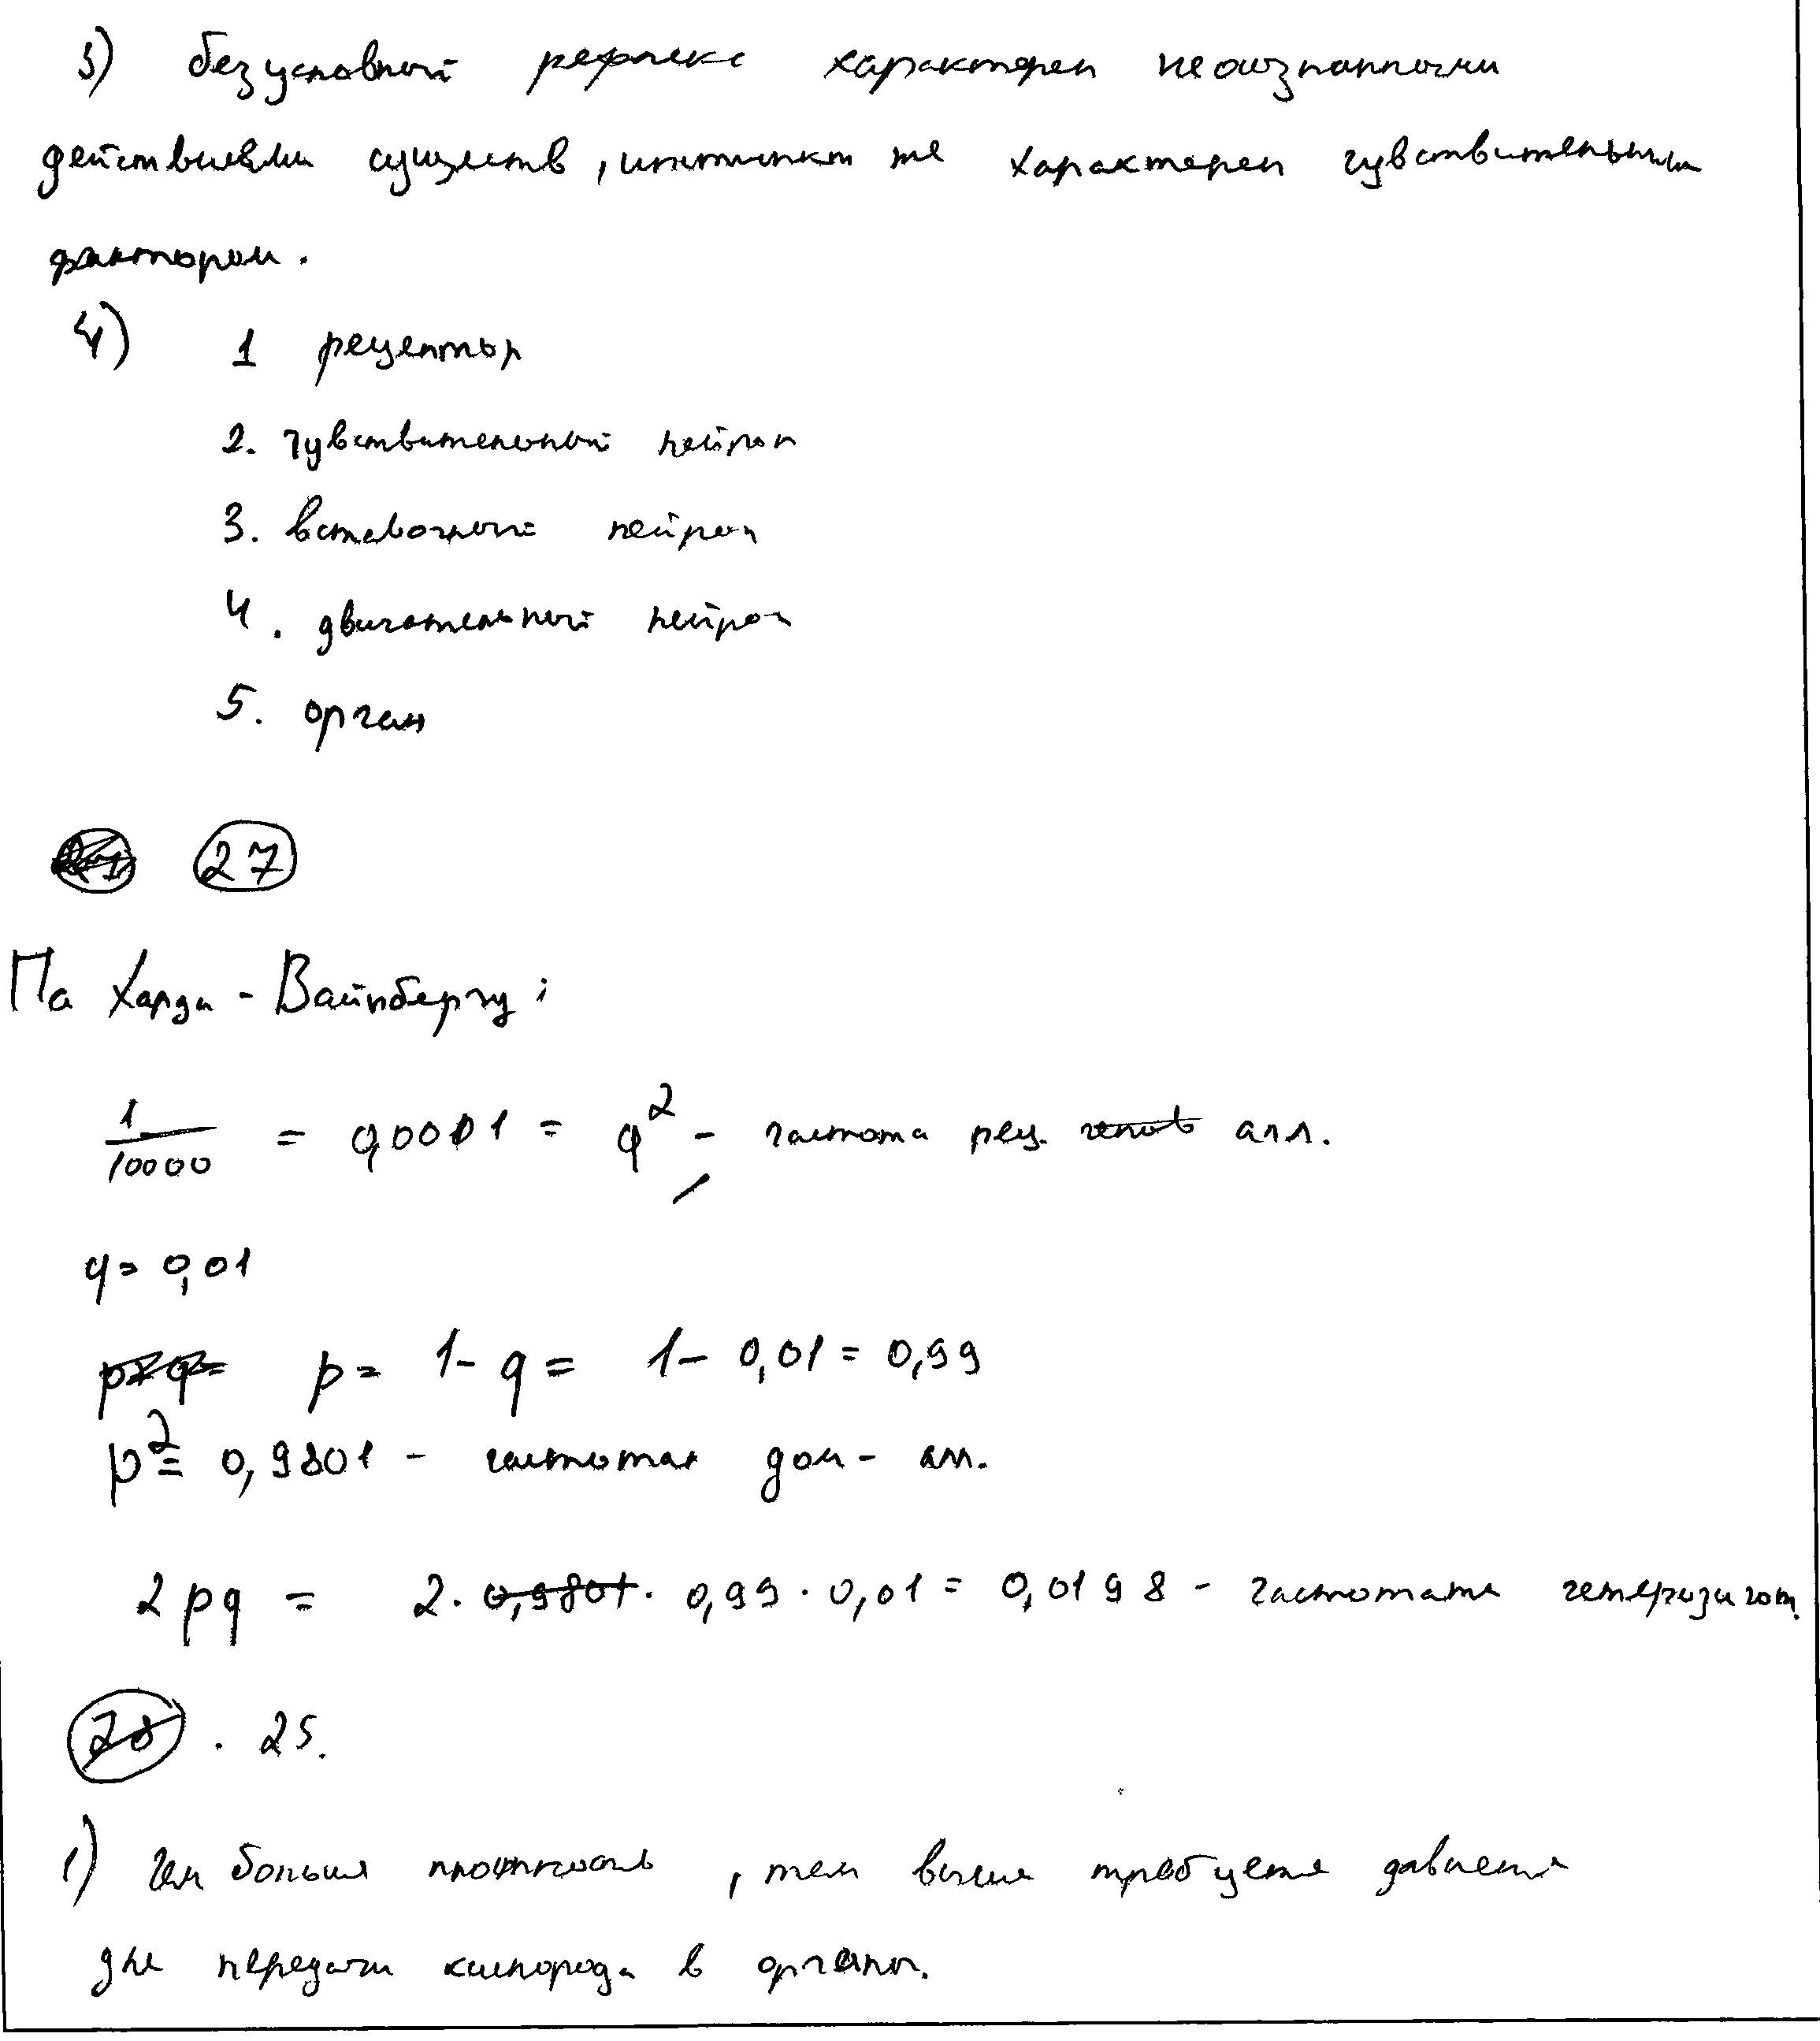 3) безусловный рефлекс характерен неосознанными
действиями существ, инстинкт же характерен чувствительным
фактором.
4) 1 рецептор
2. чувствительный нейрон
3. вставочный нейрон
4. двигательный нейрон
5. орган
27
Па Харди - Вайнбергу:
1/10000 = 0,0001 = q² - частота рец. алл.
q = 0,01
p = 1 - q = 1 - 0,01 = 0,99
p² = 0,9801 - частотая дом - алл.
2pq = 2 · 0,99 · 0,01 = 0,0198 - частотата гетерозигот.
25.
1) Чем больше плотность, тем выше требуете давление
для передачи кислорода в органы.